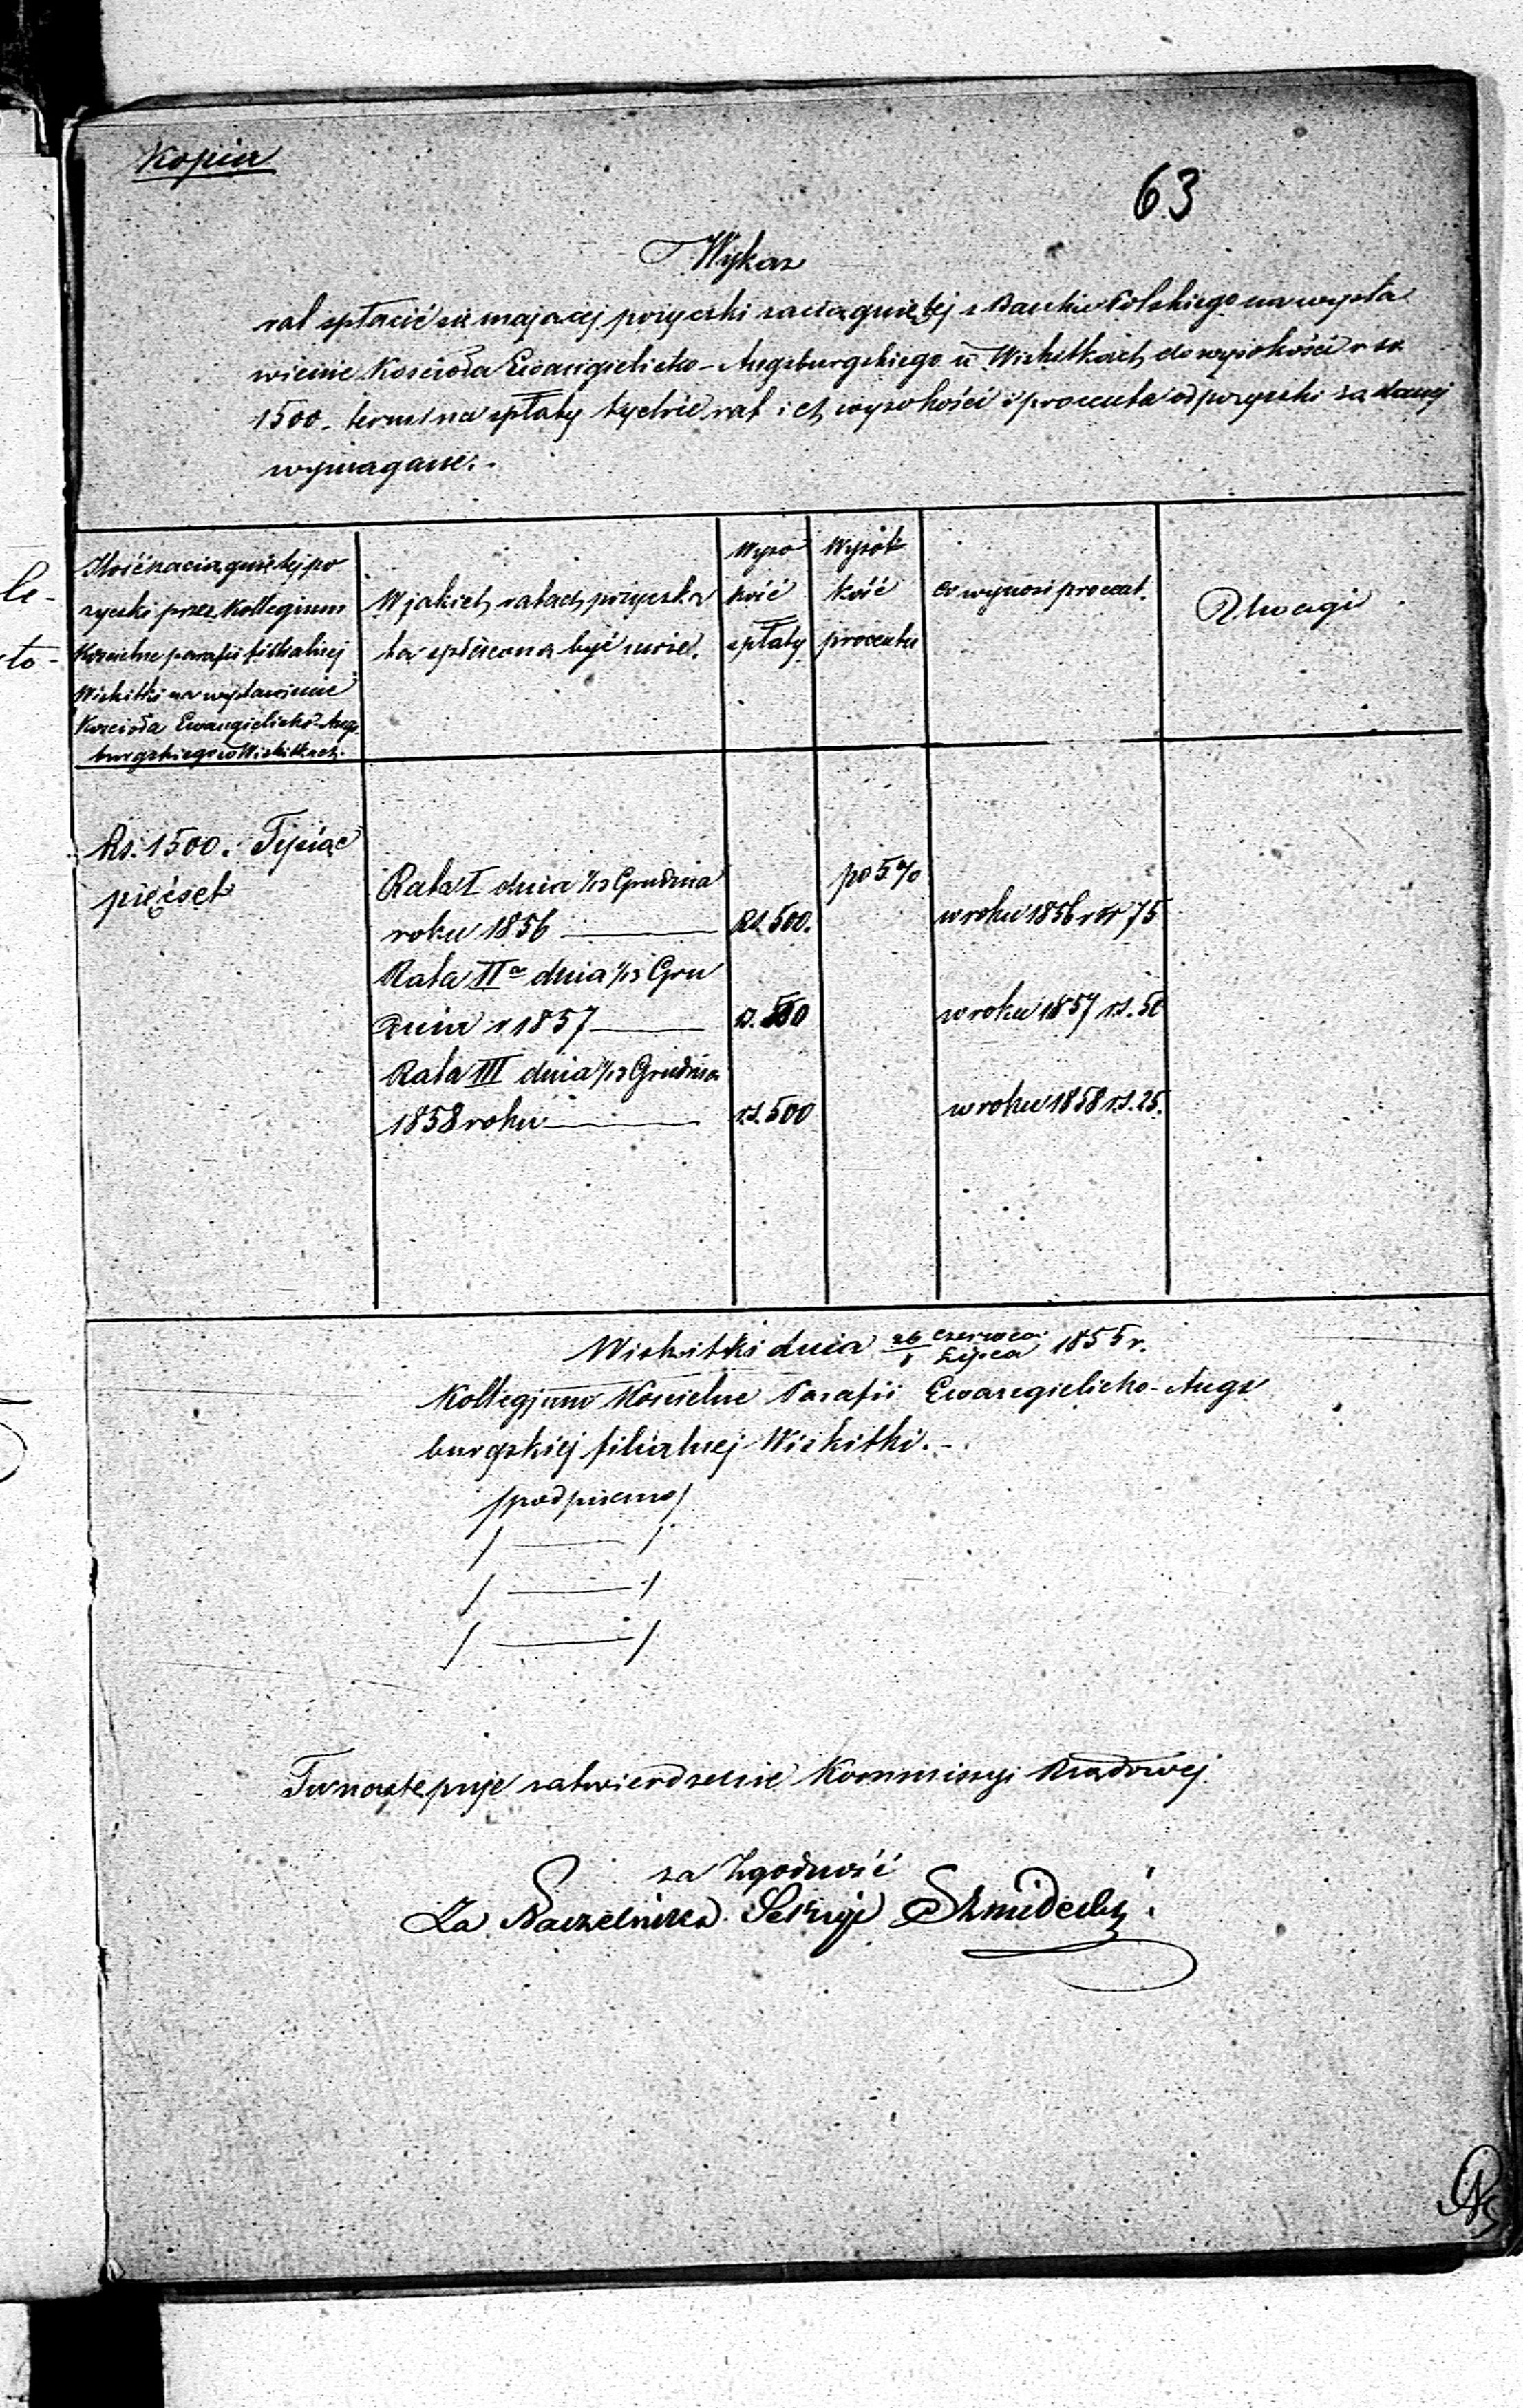 Kopia
63
Wykaz
rat spłacić się mającej pożyczki zaciągniętej z Banku Polskiego na wysta
wienie Kościoła Ewangielicko-Augsburgskiego w Wiskitkach do wysokości rsr
1500. termina spłaty tychże rat ich wysokości i procenta od pożyczki żądanej
wymagane.
Ilość zaciągniętej po
życzki przez Kollegium
Kościelne parafii filialnej
Wiskitki na wystawienie
Kościoła Ewangielicko-Augs
burgskiego w Wiskitkach.
W jakich ratach pożyczka
ta spłacona być może.
Wyso
kość
spłaty
Wyso
kość
procentu
co wynosi procent.
Uwagi
Rs. 1500. Tysiąc
pięćset
Rata I dnia 1/13 Grudnia
roku 1856 Rs. 500.
po 5%
w roku 1856 rsr 75
Rata IIa dnia 1/13 Gru
dnia r 1857 rs. 500
w roku 1857 rs. 50
Rata III dnia 1/13 Grudnia
1858 roku rs. 500
w roku 1858 rs. 25.
Wiskitki dnia 26 Czerwca / 1 Lipca 1855 r.
Kollegjum Kościelne Parafii Ewangielicko-Augs
burgskiej filialnej Wiskitki. -
/podpisano/
/ — /
/ — /
/ — /
Tu następuje zatwierdzenie Kommissyi Rządowej
za Zgodność
Za Naczelnika Sekcyi